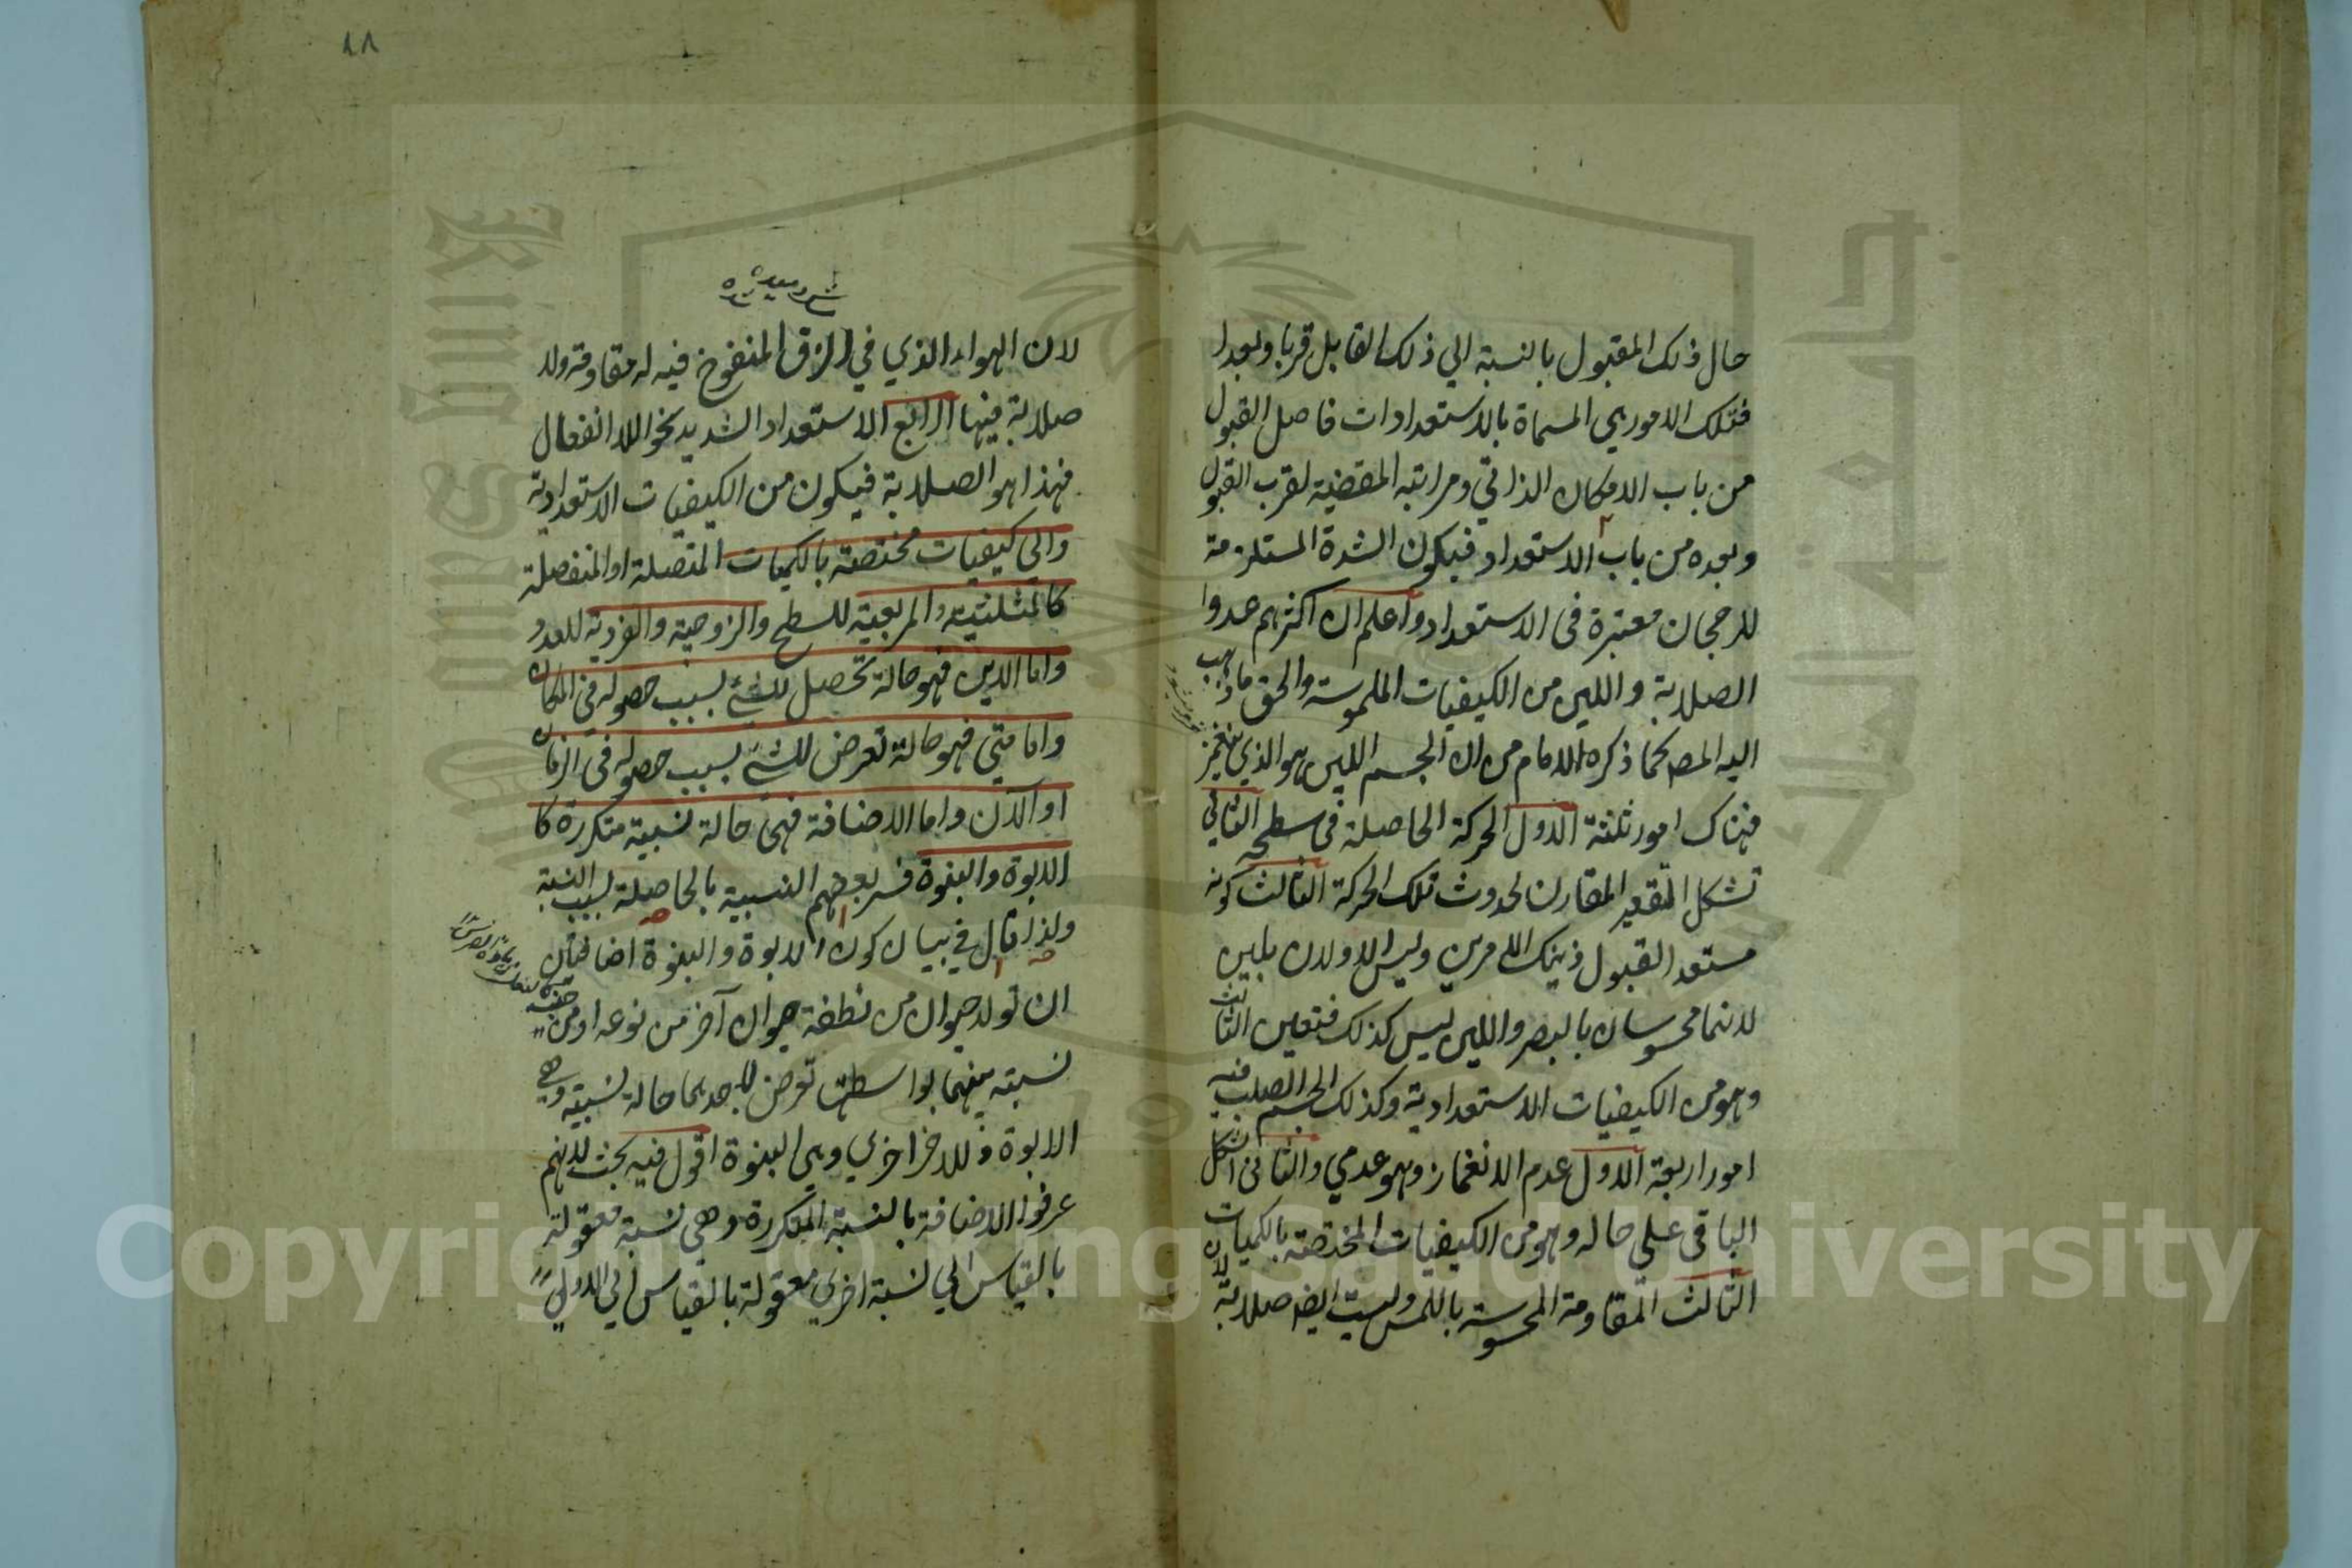 حال ذلك المقبول بالنسبة الي ذلك القابل قربا وبعدا
فتلك الامور هي المسماة بالاستعدادات فاصل القبول
من باب الامكان الذاتي ومراتبه المقضية لقرب القبول
وبعده من باب الاستعداد فيكون الشدة المستلزمة
للرجحان معتبرة في الاستعداد واعلم ان اكثرهم عدوا
الصلابة واللين من الكيفيات الملموسة والحق ما ذهب
اليه المص كما ذكره الامام من ان الجسم اللين هو الذي ينغمز
فهناك امور ثلثة الاول الحركة الحاصلة في سطحه الثاني
شكل التقعير المقارن لحدوث تلك الحركة الثالث كونه
مستعد القبول ذينك الامرين وليس الاولان بلين
لانهما محسوسان بالبصر واللين ليس كذلك فتعين الثالث
وهو من الكيفيات الاستعدادية وكذلك الجسم الصلب فيه
امور اربعة الاول عدم الانغماز وهو عدمي والثاني الشكل
الباقي على حاله وهو من الكيفيات المختصة بالكميات
الثالث المقاومة المحسوسة باللمس وليست ايضا صلابة لان
١٨
لان الهواء الذي في الزق المنفوخ فيه له مقاومة ولا
صلابة فيها الرابع الاستعداد الشديد نحو اللا انفعال
فهذا هو الصلابة فيكون من الكيفيات الاستعدادية
والي كيفيات مختصة بالكميات المتصلة او المنفصلة
كالمثلثية والمربعية للسطح والزوجية والفردية للعدد
واما الاين فهو حالة تحصل للشئ بسبب حصوله في المكان
واما متي فهو حالة تعرض للشئ بسبب حصوله في الزمان
او الآن واما الاضافة فهي حالة نسبية متكررة كا
الابوة والبنوة فسر بعضهم النسبية بالحاصلة بسبب النسبة
ولذا قال في بيان كون الابوة والبنوة اضافتان
ان تولد حيوان من نطفة حيوان آخر من نوعه او من جنسه
نسبة بينهما بواسطتها تعرض لاحدهما حالة نسبية وهي
الابوة وللاخر اخري وهي البنوة اقول فيه بحث لانهم
عرفوا الاضافة بالنسبة المتكررة وهي نسبة معقولة
بالقياس الي نسبة اخري معقولة بالقياس الي الاولي
Copyright © King Saud University